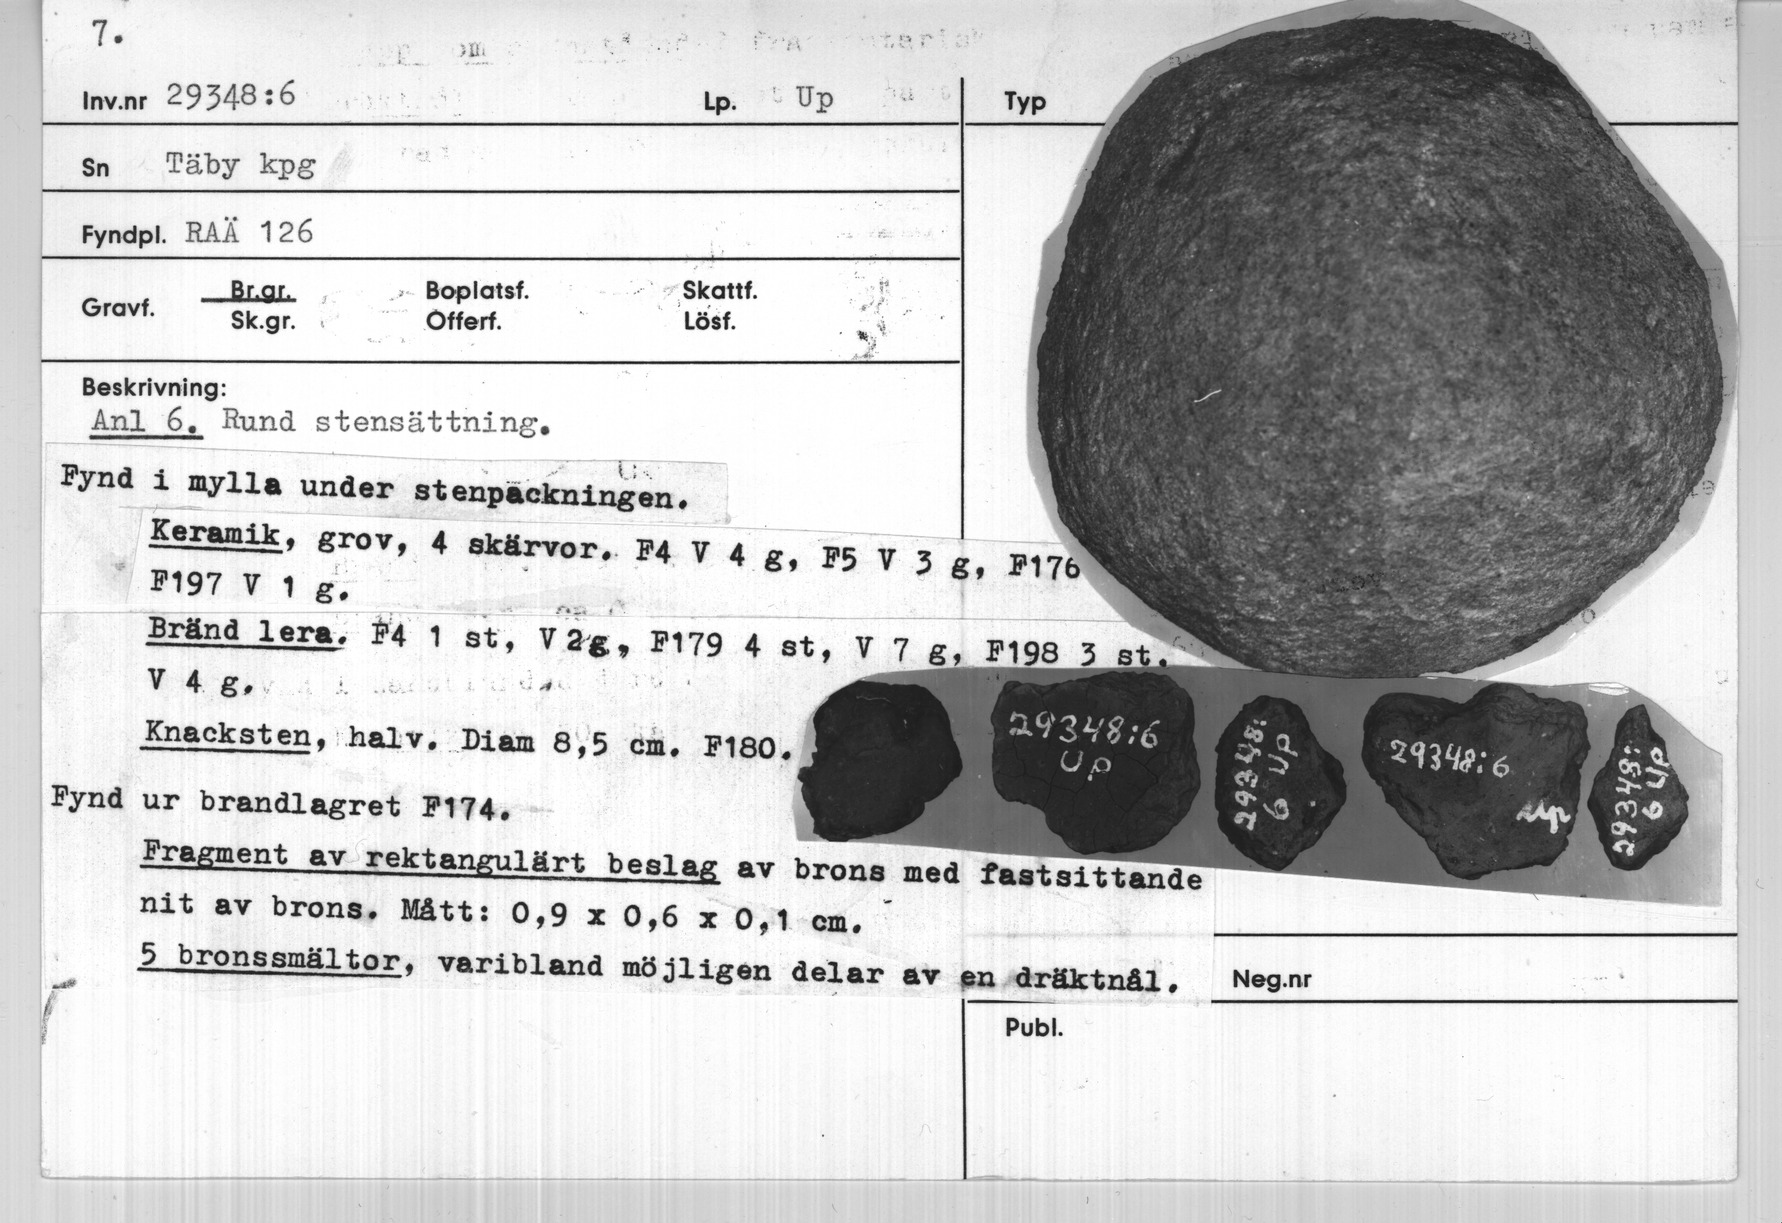 7.
Inv.nr 29348:6 Lp. Up Typ
Sn Täby kpg
Fyndpl. RAÄ 126
Gravf. Br.gr. Boplatsf. Skattf.
Sk.gr. Offerf. Lösf.
Beskrivning:
Anl 6. Rund stensättning.
Fynd i mylla under stenpackningen.
Keramik, grov, 4 skärvor. F4 V 4 g, F5 V 3 g, F176
F197 V 1 g.
Bränd lera. F4 1 st, V 2g, F179 4 st, V 7 g, F198 3 st.
V 4 g.
Knacksten, halv. Diam 8,5 cm. F180.
29348:6
Up
29348:
6 Up
29348:6
Up
29348:
6 Up
Fynd ur brandlagret F174.
Fragment av rektangulärt beslag av brons med fastsittande
nit av brons. Mått: 0,9 x 0,6 x 0,1 cm.
5 bronssmältor, varibland möjligen delar av en dräktnål.
Neg.nr
Publ.